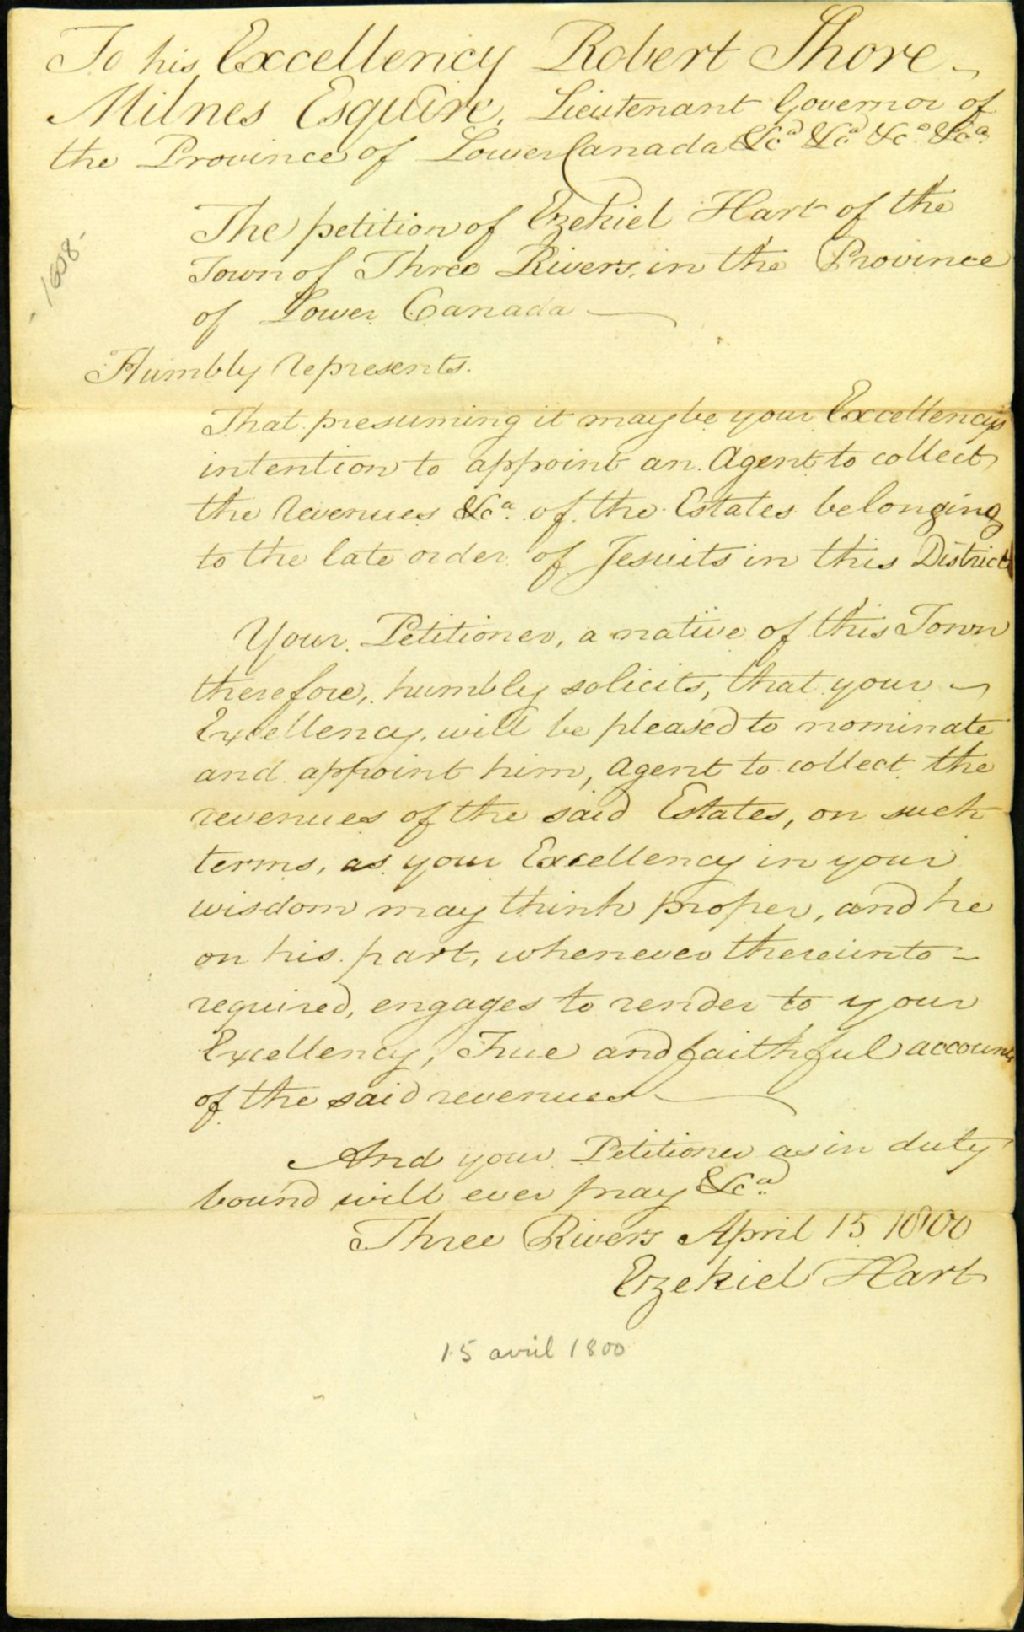 To his Excellency Robert Shore
Milnes Esquire, Lieutenant Governor of
the Province of Lower Canada &ca &ca &ca &ca
The petition of Ezekiel Hart of the
Town of Three Rivers, in the Province
of Lower Canada
- 1608 -
Humbly Represents.
That presuming it may be your Excellencys
intention to appoint an Agent to collect
the Revenues &ca. of the Estates belonging
to the late order of Jesuits in this District
Your Petitioner, a native of this Town
therefore, humbly solicits, that your
Excellency, will be pleased to nominate
and appoint him, Agent to collect the
revenues of the said Estates, on such
terms, as your Excellency in your
wisdom may think proper, and he
on his part, whenever thereunto
required, engages to render to your
Excellency, True and faithful accounts
of the said revenues
And your Petitioner as in duty
bound will ever pray &ca.
Three Rivers April 15 1800
Ezekiel Hart
15 avril 1800